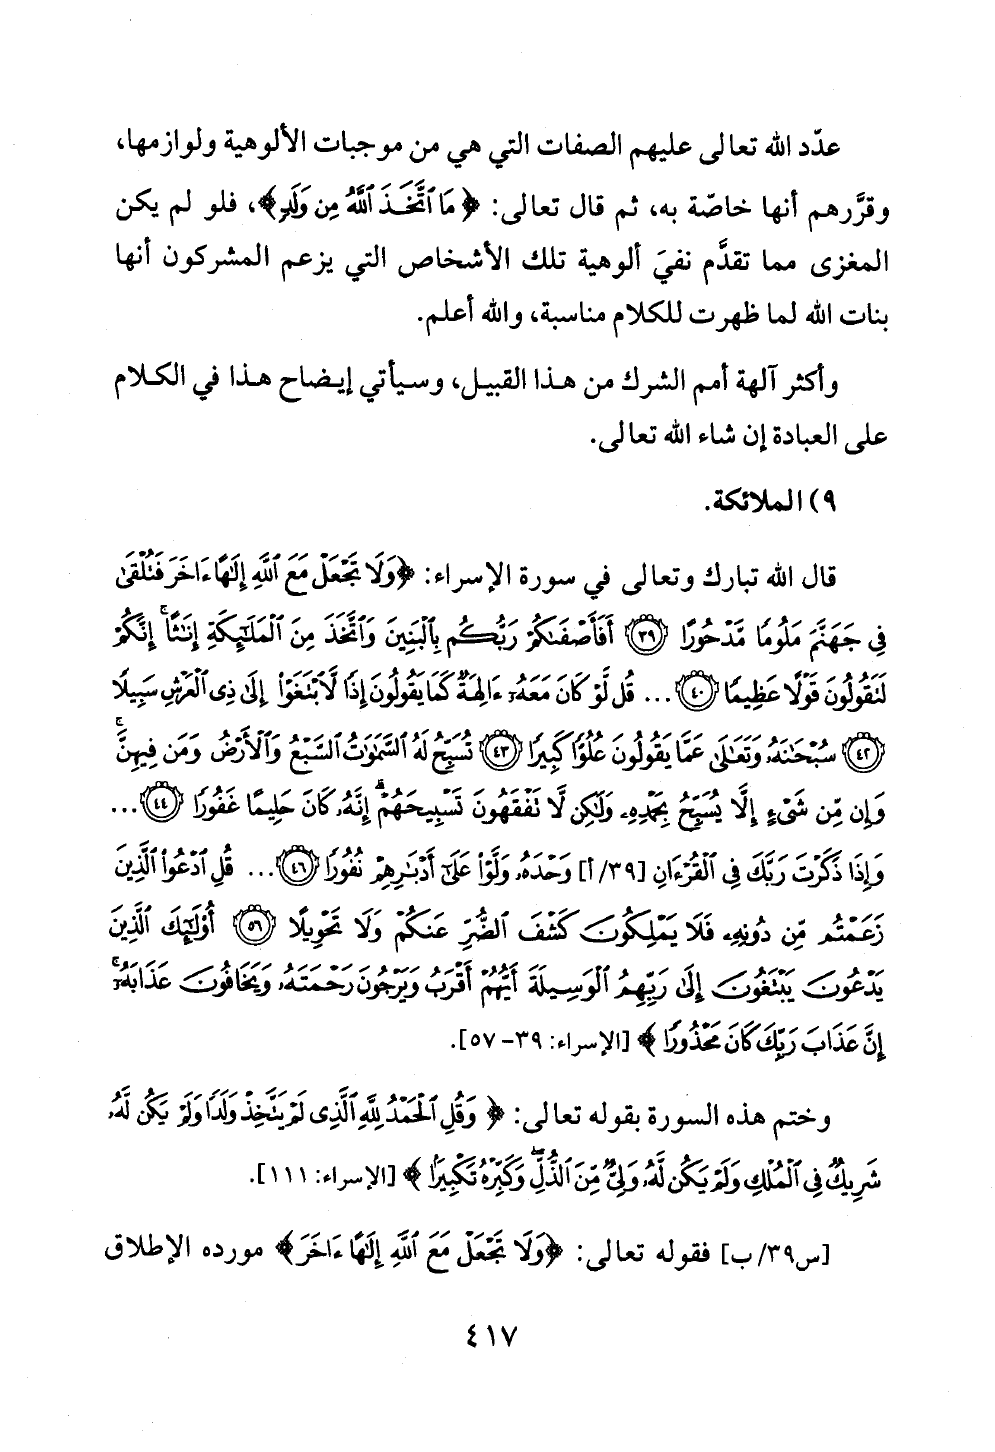 عدّد الله تعالى عليهم الصفات التي هي من موجبات الألوهية ولوازمها،
وقرَّرهم أنها خاصّة به، ثم قال تعالى: ﴿مَا ٱتَّخَذَ ٱللَّهُ مِن وَلَدٍ﴾، فلو لم يكن
المغزى مما تقدَّم نفيَ ألوهية تلك الأشخاص التي يزعم المشركون أنها
بنات الله لما ظهرت للكلام مناسبة، والله أعلم.
وأكثر آلهة أمم الشرك من هذا القبيل، وسيأتي إيضاح هذا في الكلام
على العبادة إن شاء الله تعالى.
٩) الملائكة.
قال الله تبارك وتعالى في سورة الإسراء: ﴿وَلَا تَجْعَلْ مَعَ ٱللَّهِ إِلَٰهًا ءَاخَرَ فَتُلْقَىٰ
فِى جَهَنَّمَ مَلُومًا مَّدْحُورًا ٣٩ أَفَأَصْفَىٰكُمْ رَبُّكُم بِٱلْبَنِينَ وَٱتَّخَذَ مِنَ ٱلْمَلَٰٓئِكَةِ إِنَٰثًا ۚ إِنَّكُمْ
لَتَقُولُونَ قَوْلًا عَظِيمًا ٤٠ ... قُل لَّوْ كَانَ مَعَهُۥٓ ءَالِهَةٌ كَمَا يَقُولُونَ إِذًا لَّٱبْتَغَوْا۟ إِلَىٰ ذِى ٱلْعَرْشِ سَبِيلًا
٤٢ سُبْحَٰنَهُۥ وَتَعَٰلَىٰ عَمَّا يَقُولُونَ عُلُوًّا كَبِيرًا ٤٣ تُسَبِّحُ لَهُ ٱلسَّمَٰوَٰتُ ٱلسَّبْعُ وَٱلْأَرْضُ وَمَن فِيهِنَّ ۚ
وَإِن مِّن شَىْءٍ إِلَّا يُسَبِّحُ بِحَمْدِهِۦ وَلَٰكِن لَّا تَفْقَهُونَ تَسْبِيحَهُمْ ۗ إِنَّهُۥ كَانَ حَلِيمًا غَفُورًا ٤٤ ...
وَإِذَا ذَكَرْتَ رَبَّكَ فِى ٱلْقُرْءَانِ [٣٩/ أ] وَحْدَهُۥ وَلَّوْا۟ عَلَىٰٓ أَدْبَٰرِهِمْ نُفُورًا ٤٦ ... قُلِ ٱدْعُوا۟ ٱلَّذِينَ
زَعَمْتُم مِّن دُونِهِۦ فَلَا يَمْلِكُونَ كَشْفَ ٱلضُّرِّ عَنكُمْ وَلَا تَحْوِيلًا ٥٦ أُو۟لَٰٓئِكَ ٱلَّذِينَ
يَدْعُونَ يَبْتَغُونَ إِلَىٰ رَبِّهِمُ ٱلْوَسِيلَةَ أَيُّهُمْ أَقْرَبُ وَيَرْجُونَ رَحْمَتَهُۥ وَيَخَافُونَ عَذَابَهُۥٓ ۚ
إِنَّ عَذَابَ رَبِّكَ كَانَ مَحْذُورًا﴾ [الإسراء: ٣٩- ٥٧].
وختم هذه السورة بقوله تعالى: ﴿وَقُلِ ٱلْحَمْدُ لِلَّهِ ٱلَّذِى لَمْ يَتَّخِذْ وَلَدًا وَلَمْ يَكُن لَّهُۥ
شَرِيكٌ فِى ٱلْمُلْكِ وَلَمْ يَكُن لَّهُۥ وَلِىٌّ مِّنَ ٱلذُّلِّ ۖ وَكَبِّرْهُ تَكْبِيرًۢا﴾ [الإسراء: ١١١].
[س٣٩/ ب] فقوله تعالى: ﴿وَلَا تَجْعَلْ مَعَ ٱللَّهِ إِلَٰهًا ءَاخَرَ﴾ مورده الإطلاق
٤١٧